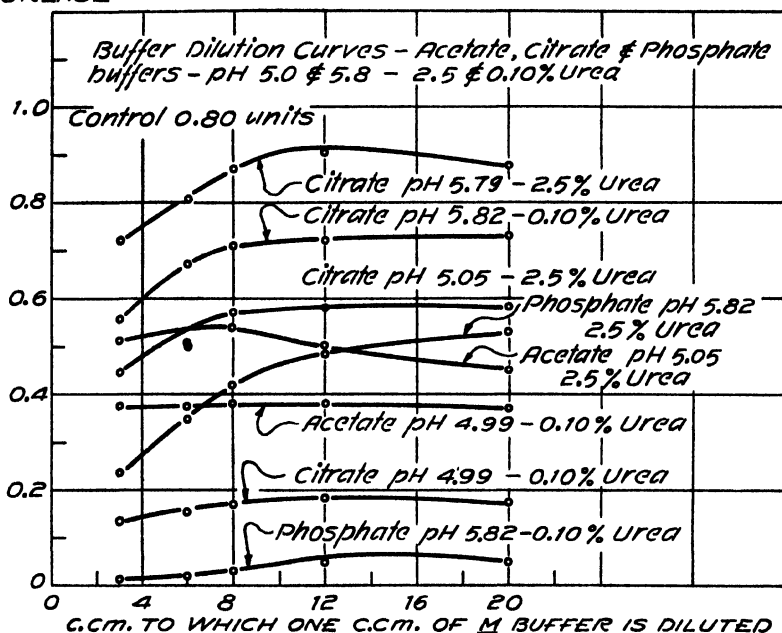 Buffer Dilution Curves - Acetate, Citrate & Phosphate
buffers - pH 5.0 & 5.8 - 2.5 & 0.10% Urea
1.0
Control 0.80 units
Citrate pH 5.79 - 2.5% Urea
0.8
Citrate pH 5.82 - 0.10% Urea
Citrate pH 5.05 - 2.5% Urea
0.6
Phosphate pH 5.82
2.5% Urea
Acetate pH 5.05
2.5% Urea
0.4
Acetate pH 4.99 - 0.10% Urea
Citrate pH 4.99 - 0.10% Urea
0.2
Phosphate pH 5.82 - 0.10% Urea
0
0 4 8 12 16 20
C.Cm. TO WHICH ONE C.Cm. OF M BUFFER IS DILUTED